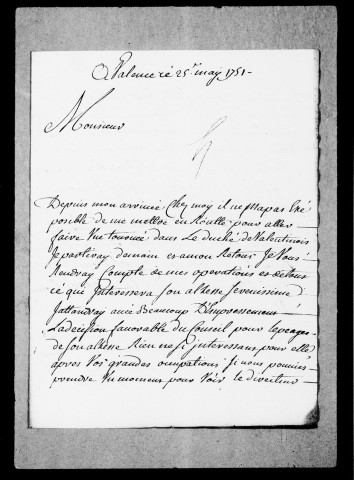 A Valence ce 25.e may 1751 –
Monsieur
Depuis mon arrivée Chez moy il ne ma pas Eté
posible de me mettre en Routte pour aller
faire Une tournée dans Le duché de Valentinois
Je partiray demain et amon Retour Je Vous
Rendray Compte de mes operations et de tout
ce que Interessera Son altesse Serenissime
Jattandray avec Beaucoup D'Impressement
La decision favorable du Conseil pour le peage
de Son altesse Rien ne si interessant pour elle
apres Vos grandes occupations si vous pouviés
prendre Un moment pour Voir le directeur